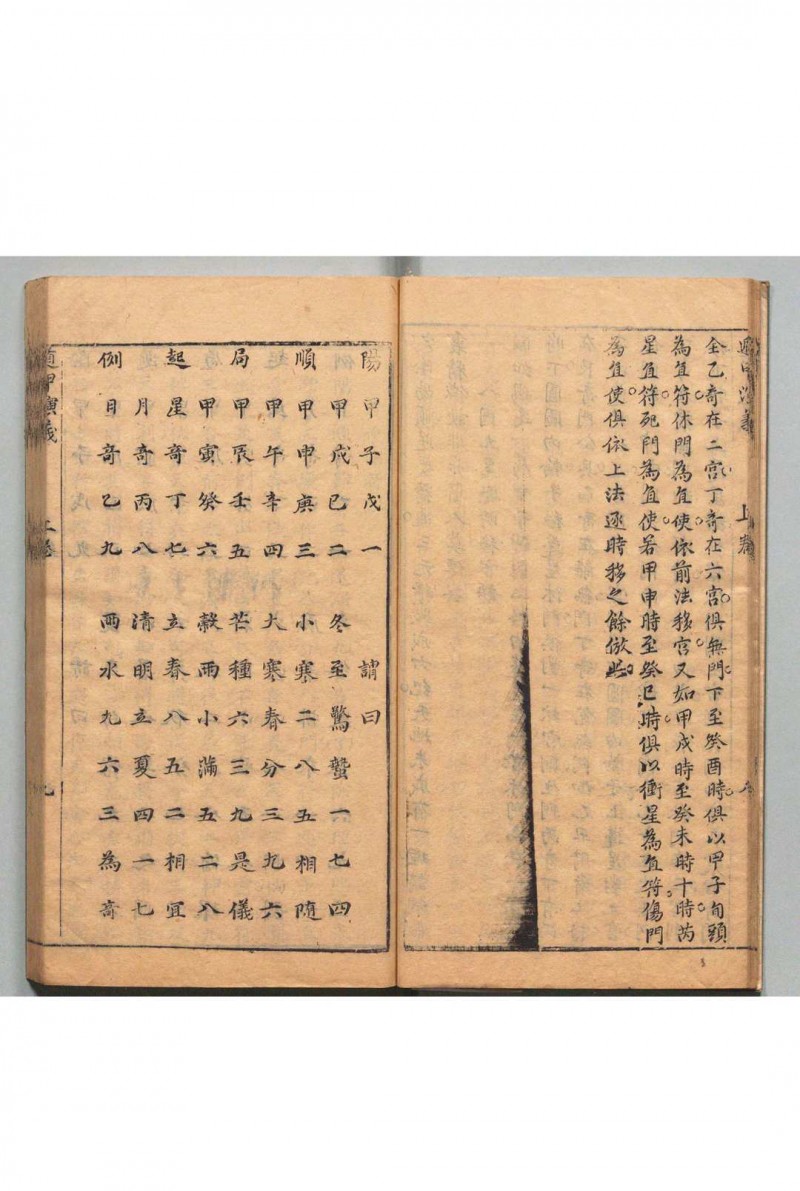 遁甲演義 上卷
全乙奇在二宮丁奇在六宮俱無門下至癸酉時俱以甲子旬頭
為直符休門為直使依前法移宮又如甲戌時至癸未時十時芮
星直符死門為直使若甲申時至癸巳時俱以衝星為直符傷門
為直使俱依上法逐時移之餘倣此
陽 甲子戊一 謂曰
甲戌己二 冬至驚蟄一七四
順 甲申庚三 小寒二八五相隨
甲午辛四 大寒春分三九六
局 甲辰壬五 芒種六三九是儀
甲寅癸六 穀雨小滿五二八
起 星奇丁七 立春八五二相宜
月奇丙八 清明立夏四一七
例 日奇乙九 雨水九六三為奇
遁甲演義 上卷 九